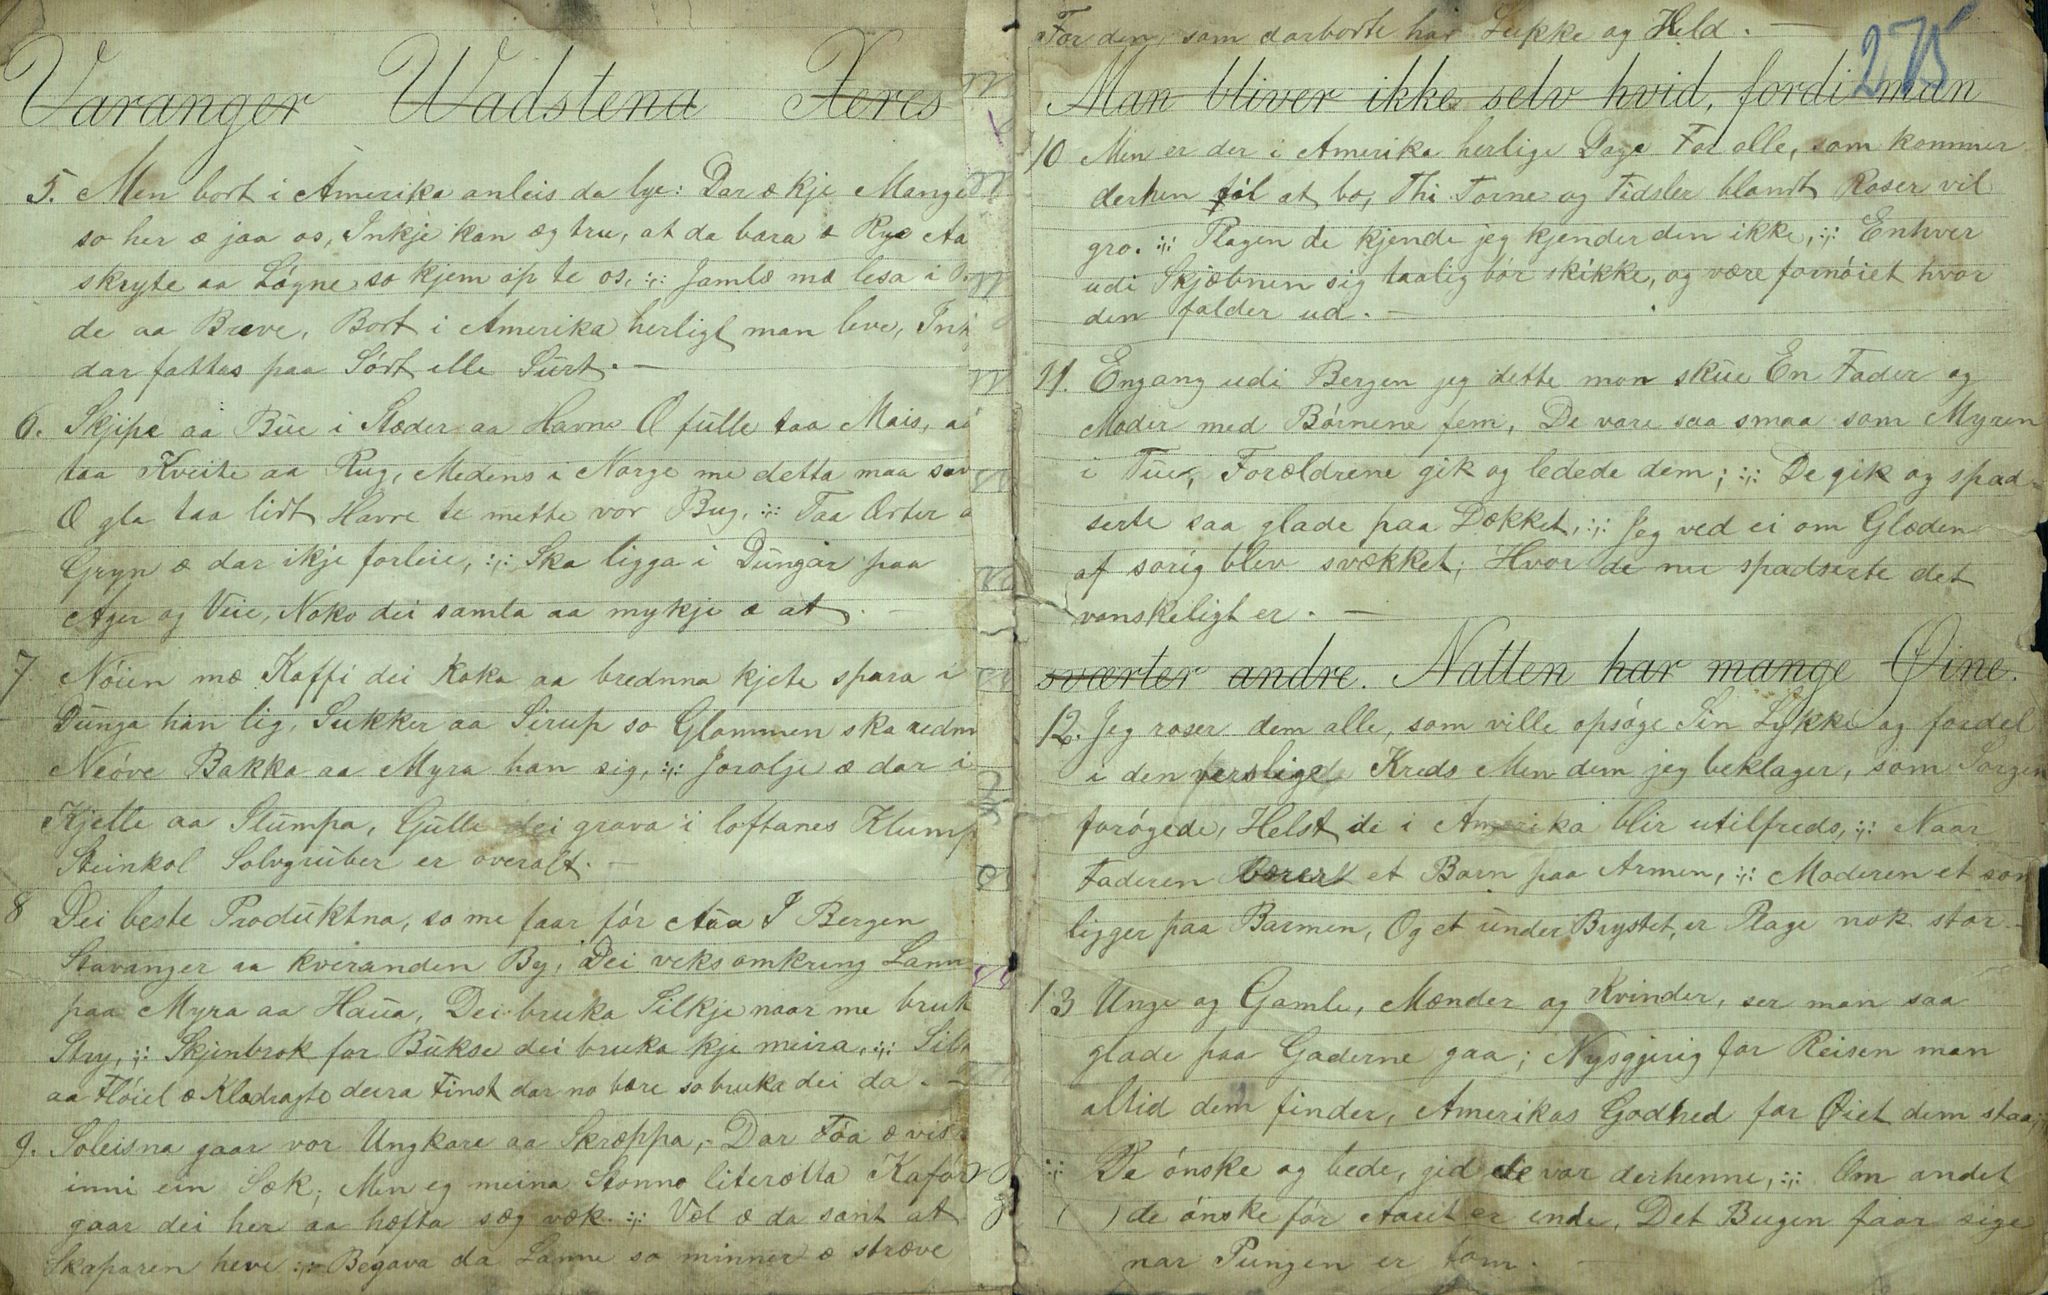 Varanger Wadstena Xeres
5. Men bort i Amerika anleis da lye: Dar æ kje Mange
so her æ jaa os, Inkje kan æg tru, at da bara æ Rye Aa
skryte aa Løgne, so kjem op te os, :,: Jamlæ mæ lesa i
de aa Breve, Bort i Amerika herligt man leve,
dar fattas paa Sødt elle Surt. —
6. Skjipe aa Bue i Stæder aa Havne Æ fulle taa Mais, aa
taa Kveite aa Rug, Medens i Norge me detta maa
Æ gla taa lidt Havre te mette vor Bug, :,: Taa Ærter
Gryn æ dar ikje forleie, :,: Ska ligga i Dungar paa
Ager og Veie, Noko dei samla aa mykje æ at. —
7 Nöien mæ Kaffi dei koka aa brednna kjete spara i
Dunga han lig, Sukker aa Sirup so Glommen ska
Neöve Bakka aa Myra han sig, :,: Jorolje æ dar i
Kjelle aa Stumpa, Gulle dei grava i loftanes Klump
Steinkol Solvgruber er overalt. —
8 Dei beste Produktna, so me faar før Aua I Bergen
Stavanger aa kveranden By, Dei veks omkring
paa Myra aa Haua, Dei bruka Silkje naar me bruk
Stry, :,: Skjinbrok for Bukse dei bruka kje meira, :,:
aa Fløiel æ Klædragte deira Finst dar no bære so bruka dei da. —
9. Soleisna gaar vor Ungkare aa Skræppa, Dar Föa æ vis
inni ein Sæk; Men eg meina Stonno literætta Kaför
gaar dei her aa hæfta sæg væk. :,: Vel æ da sant at
Skaparen heve :,: Begava da Lanne so minner æ stræve
For den, som darborte har Lukke og Held. —
275
Man bliver ikke selv hvid, fordi man
10 Men er der i Amerika herlige Dage For alle, som kommer
derhen til at bo, Thi Torne og Tidsler blandt Roser vil
gro. :,: Plagen de kjende jeg kjender den ikke, :,: Enhver
udi Skjæbnen sig taalig bør skikke, og være fornøiet hvor
den falder ud. —
11. Engang udi Bergen jeg dette mon skue En Fader og
Moder med Børnene fem, De vare saa smaa som Myren
i Tue, Forældrene gik og ledede dem; :,: De gik og spad-
serte saa glade paa Dækket, :,: Jeg ved ei om Glæden
af sorig blev svækket; Hvor de nu spadserte det
vanskeligt er. —
sværter andre. Natten har mange Øine.
12. Jeg roser dem alle, som ville opsøge Sin Lykke og fordel
i den verslige Kreds Men dem jeg beklager, som Sorgen
forøgede, Helst de i Amerika blir utilfreds, :,: Naar
Faderen bærer et Barn paa Armen, :,: Moderen et som
ligger paa Barmen, Og et under Brystet, er Plage nok stor —
13 Unge og Gamle, Mænder og Kvinder, ser man saa
glade paa Gaderne gaa; Nysgjerig for Reisen man
altid dem finder, Amerikas Godhed for Øiet dem staa,
:,: De ønske og bede, gid de var derhenne, :,: Om andet
de ønske før Aaret er ende, Det Bugen faar sige
nar Pungen er tom. —